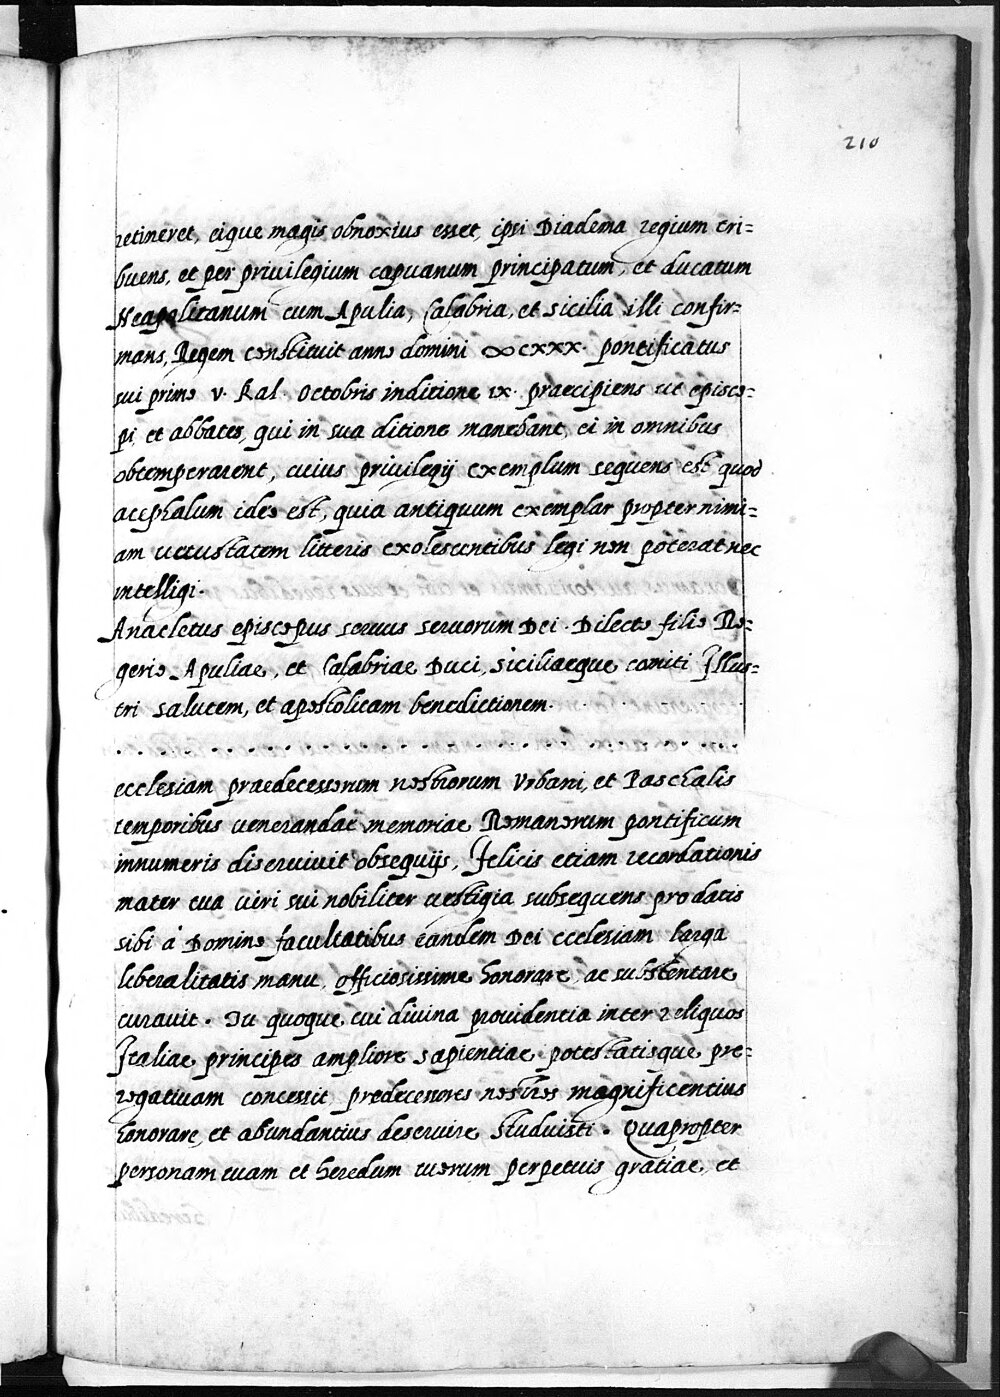 210
retineret, eique magis obnoxius esset, ipsi Diadema regium tri=
buens, et per privilegium capuanum principatum, et ducatum
Neapolitanum cum Apulia, Calabria, et Sicilia illi confir=
mans, Regem constituit anno domini ∞cxxx. pontificatus
sui primo v. Kal. Octobris inditione ix. praecipiens ut episco=
pi et abbates, qui in sua ditione manebant, ei in omnibus
obtemperarent, cuius privilegij exemplum sequens est quod
acephalum ideo est, quia antiquum exemplar propter nimi=
am uetustatem litteris exolescentibus legi non poterat nec
intelligi.
Anacletus episcopus seruus seruorum Dei. Dilecto filio Ro=
gerio Apuliae, et Calabriae Duci, siciliaeque comiti Illus=
tri salutem, et apostolicam benedictionem.
. . . . . . . . . . . . . . . . . . . . . . . .
ecclesiam praedecessorum nostrorum Vrbani, et Paschalis
temporibus uenerandae memoriae Romanorum pontificum
innumeris diseruivit obsequijs, felicis etiam recordationis
mater tua uiri sui nobiliter uestigia subsequens pro datis
sibi à Domino facultatibus eandem Dei ecclesiam larga
liberalitatis manu officiosissime honorare, ac substentare
curauit. Tu quoque cui divina providentia inter reliquos
Italiae principes ampliore sapientiae potestatisque pre=
rogativam concessit predecessores nostros magnificentius
honorare, et abundantius deservire studuisti. Quapropter
personam tuam et heredum tuorum perpetuis gratiae, et